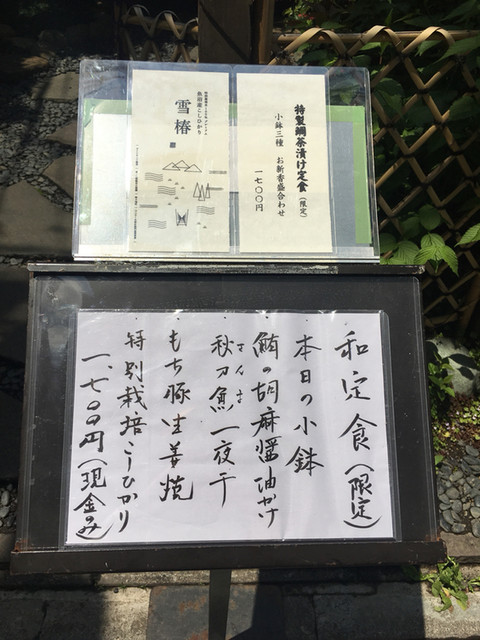 特製鯛茶漬け定食（限定）
小鉢三種 お新香盛合わせ
一七〇〇円
魚沼産こしひかり
雪椿
和定食（限定）
本日の小鉢
鮪の胡麻醤油かけ
秋刀魚一夜干
さんま
もち豚生姜焼
特別栽培こしひかり
一、七〇〇円（現金み）